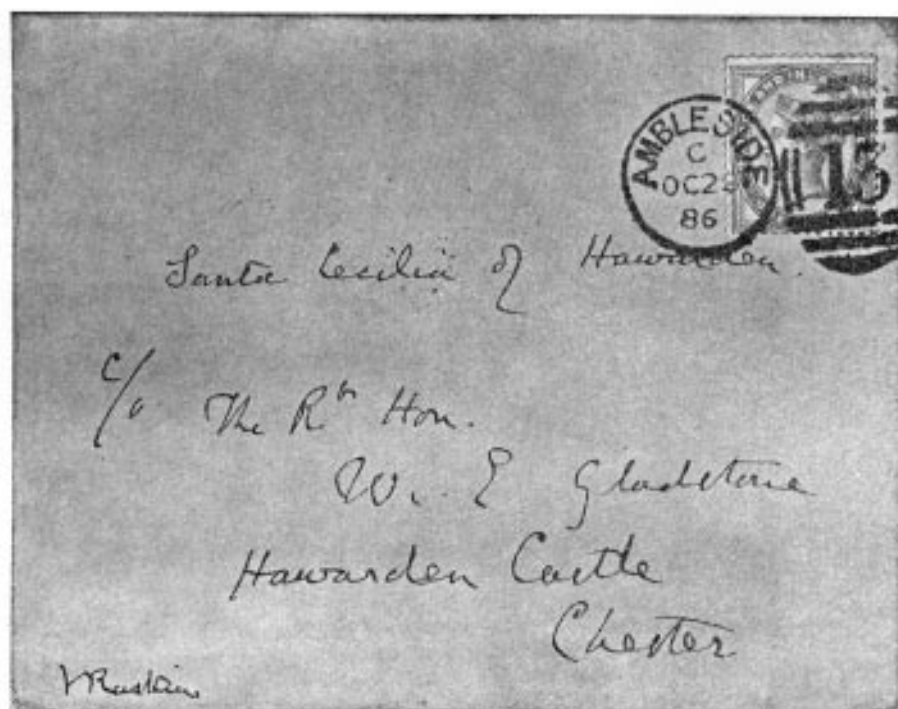 AMBLESIDE
C
OC 2
86
113
Santa Cecilia of Hawarden.
c/o The Rt Hon.
W. E Gladstone
Hawarden Castle
Chester
JRuskin